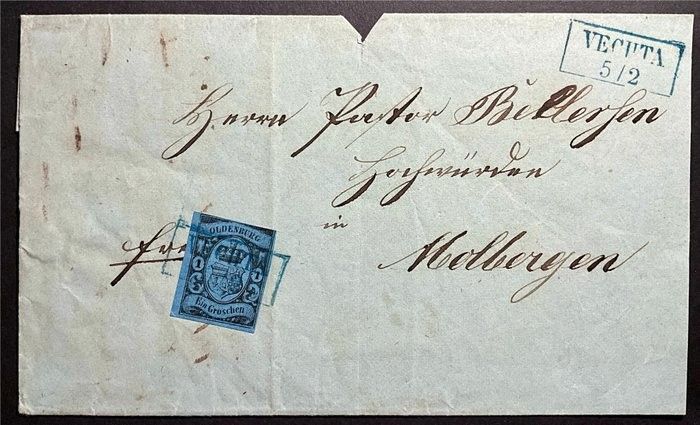 VECHTA
5/2
Herrn Pastor Bellersen
Hochwürden
in
Molbergen
fr
OLDENBURG
1 1
Ein Groschen